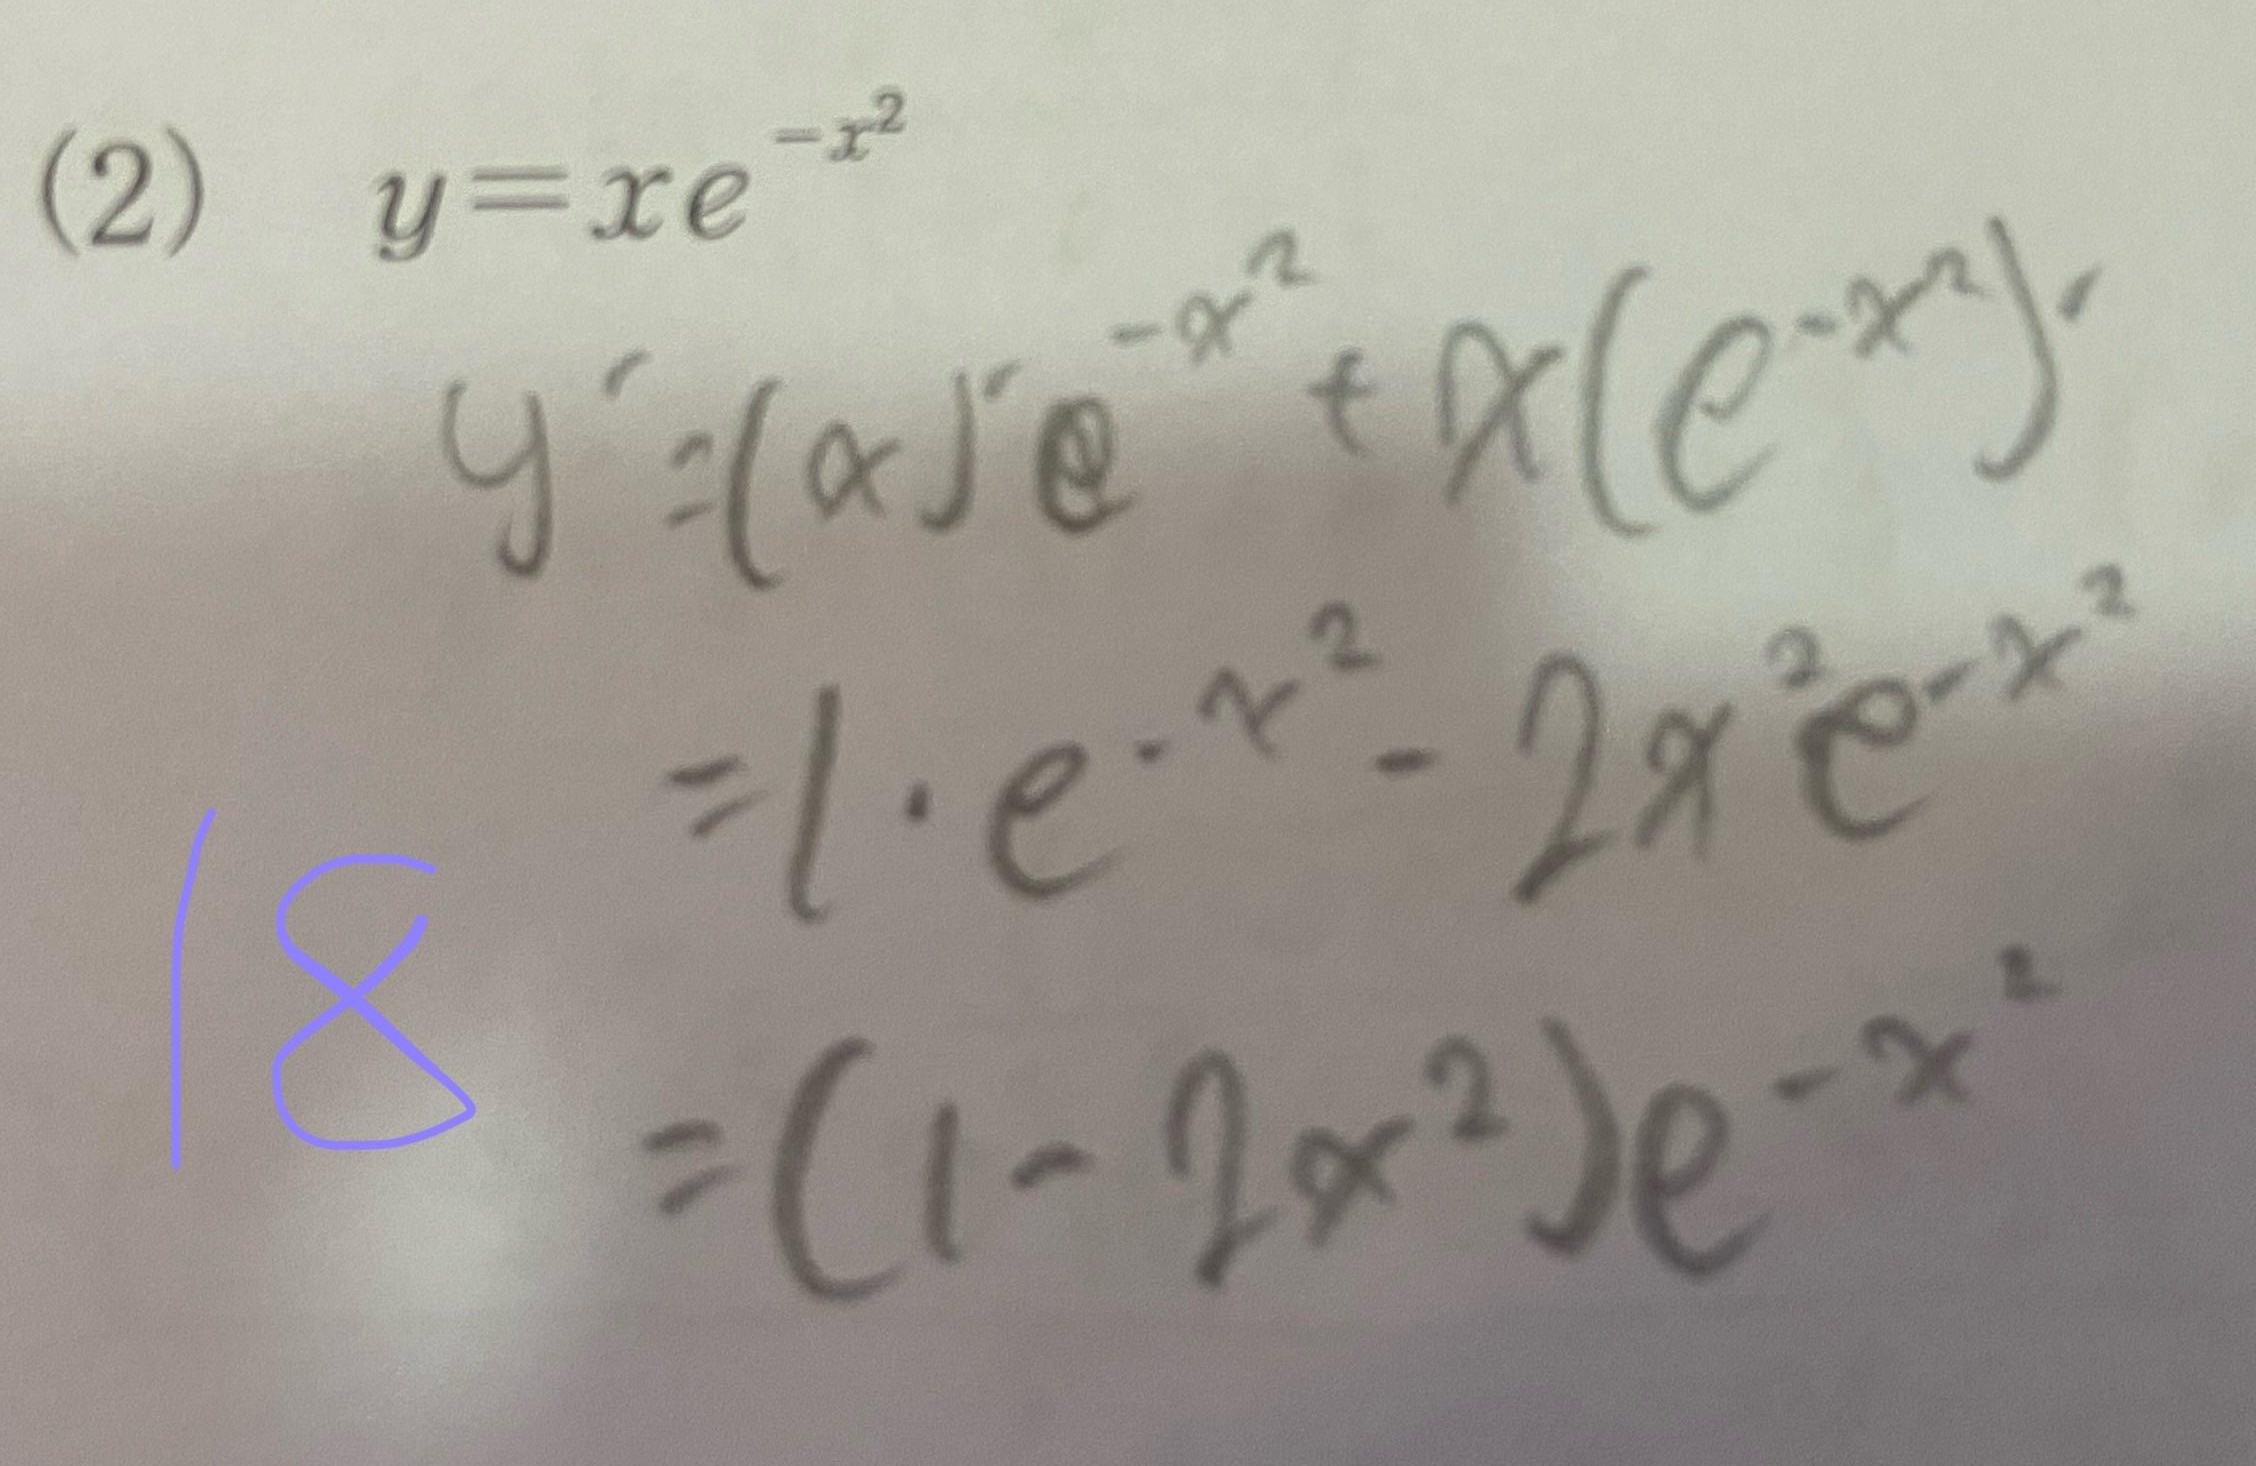 (2) y=xe^{-x^2}
y'=(x)'e^{-x^2}+x(e^{-x^2})'
=1·e^{-x^2}-2x^2e^{-x^2}
18
=(1-2x^2)e^{-x^2}